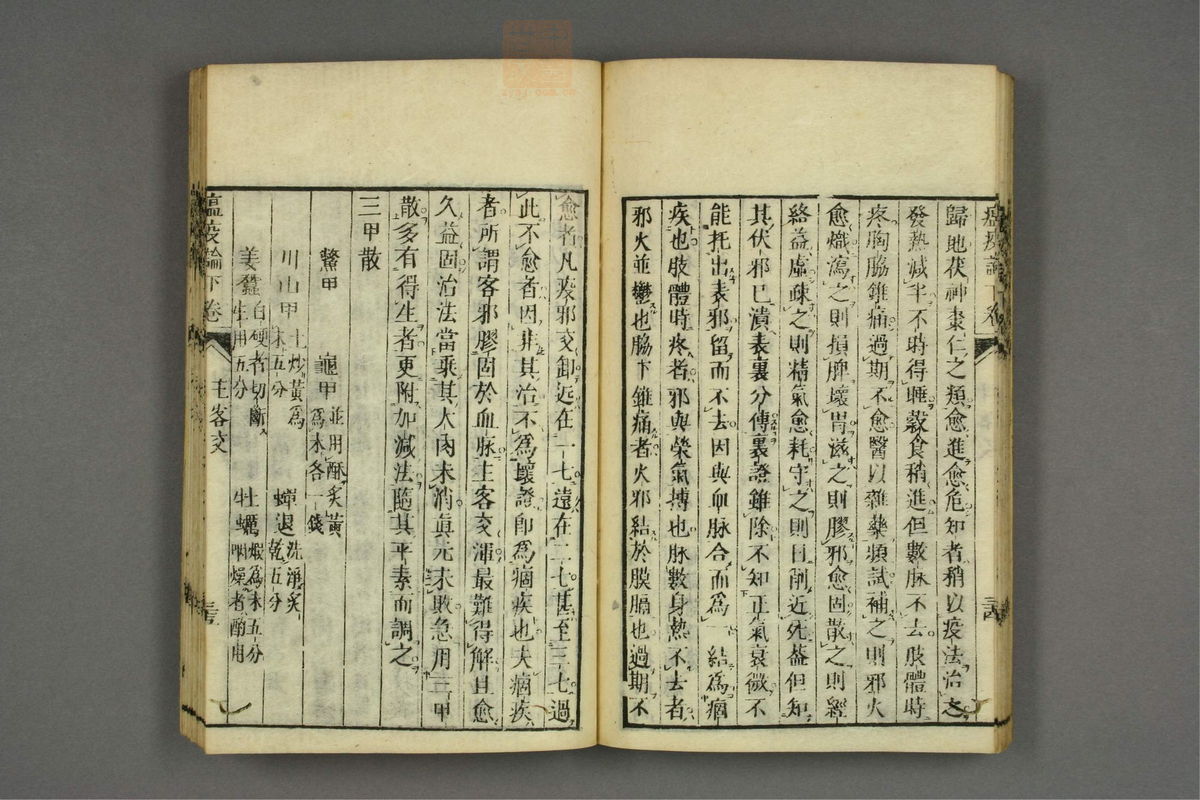 歸地茯神棗仁之類愈進愈危知者稍以疫法治之
發熱減半不時得睡穀食稍進但數脉不去肢體時
疼胸脇錐痛過期不愈醫以雜藥頻試補之則邪火
愈熾瀉之則損脾壞胃滋之則膠邪愈固散之則經
絡益虛疎之則精氣愈耗守之則日削近死蓋但知
其伏邪已潰表裏分傳裏證雖除不知正氣衰微不
能托出表邪留而不去因與血脉合而為一結為痼
疾也肢體時疼者邪與榮氣搏也脉數身熱不去者
邪火並鬱也脇下錐痛者火邪結於膜膈也過期不
愈者凡疫邪交卸近在一七遠在二七甚至三七過
此不愈者因非其治不為壞證即為痼疾也夫痼疾
者所謂客邪膠固於血脉主客交渾最難得解且愈
久益固治法當乘其大肉未消真元未敗急用三甲
散多有得生者更附加減法隨其平素而調之
三甲散
鱉甲 龜甲並用酥炙黃為末各一錢
川山甲土炒黃為末五分 蟬退洗淨炙乾五分
姜蠶白硬者切斷生用五分 牡蠣煅為末五分咽燥者酌用
瘟疫論下卷 主客交